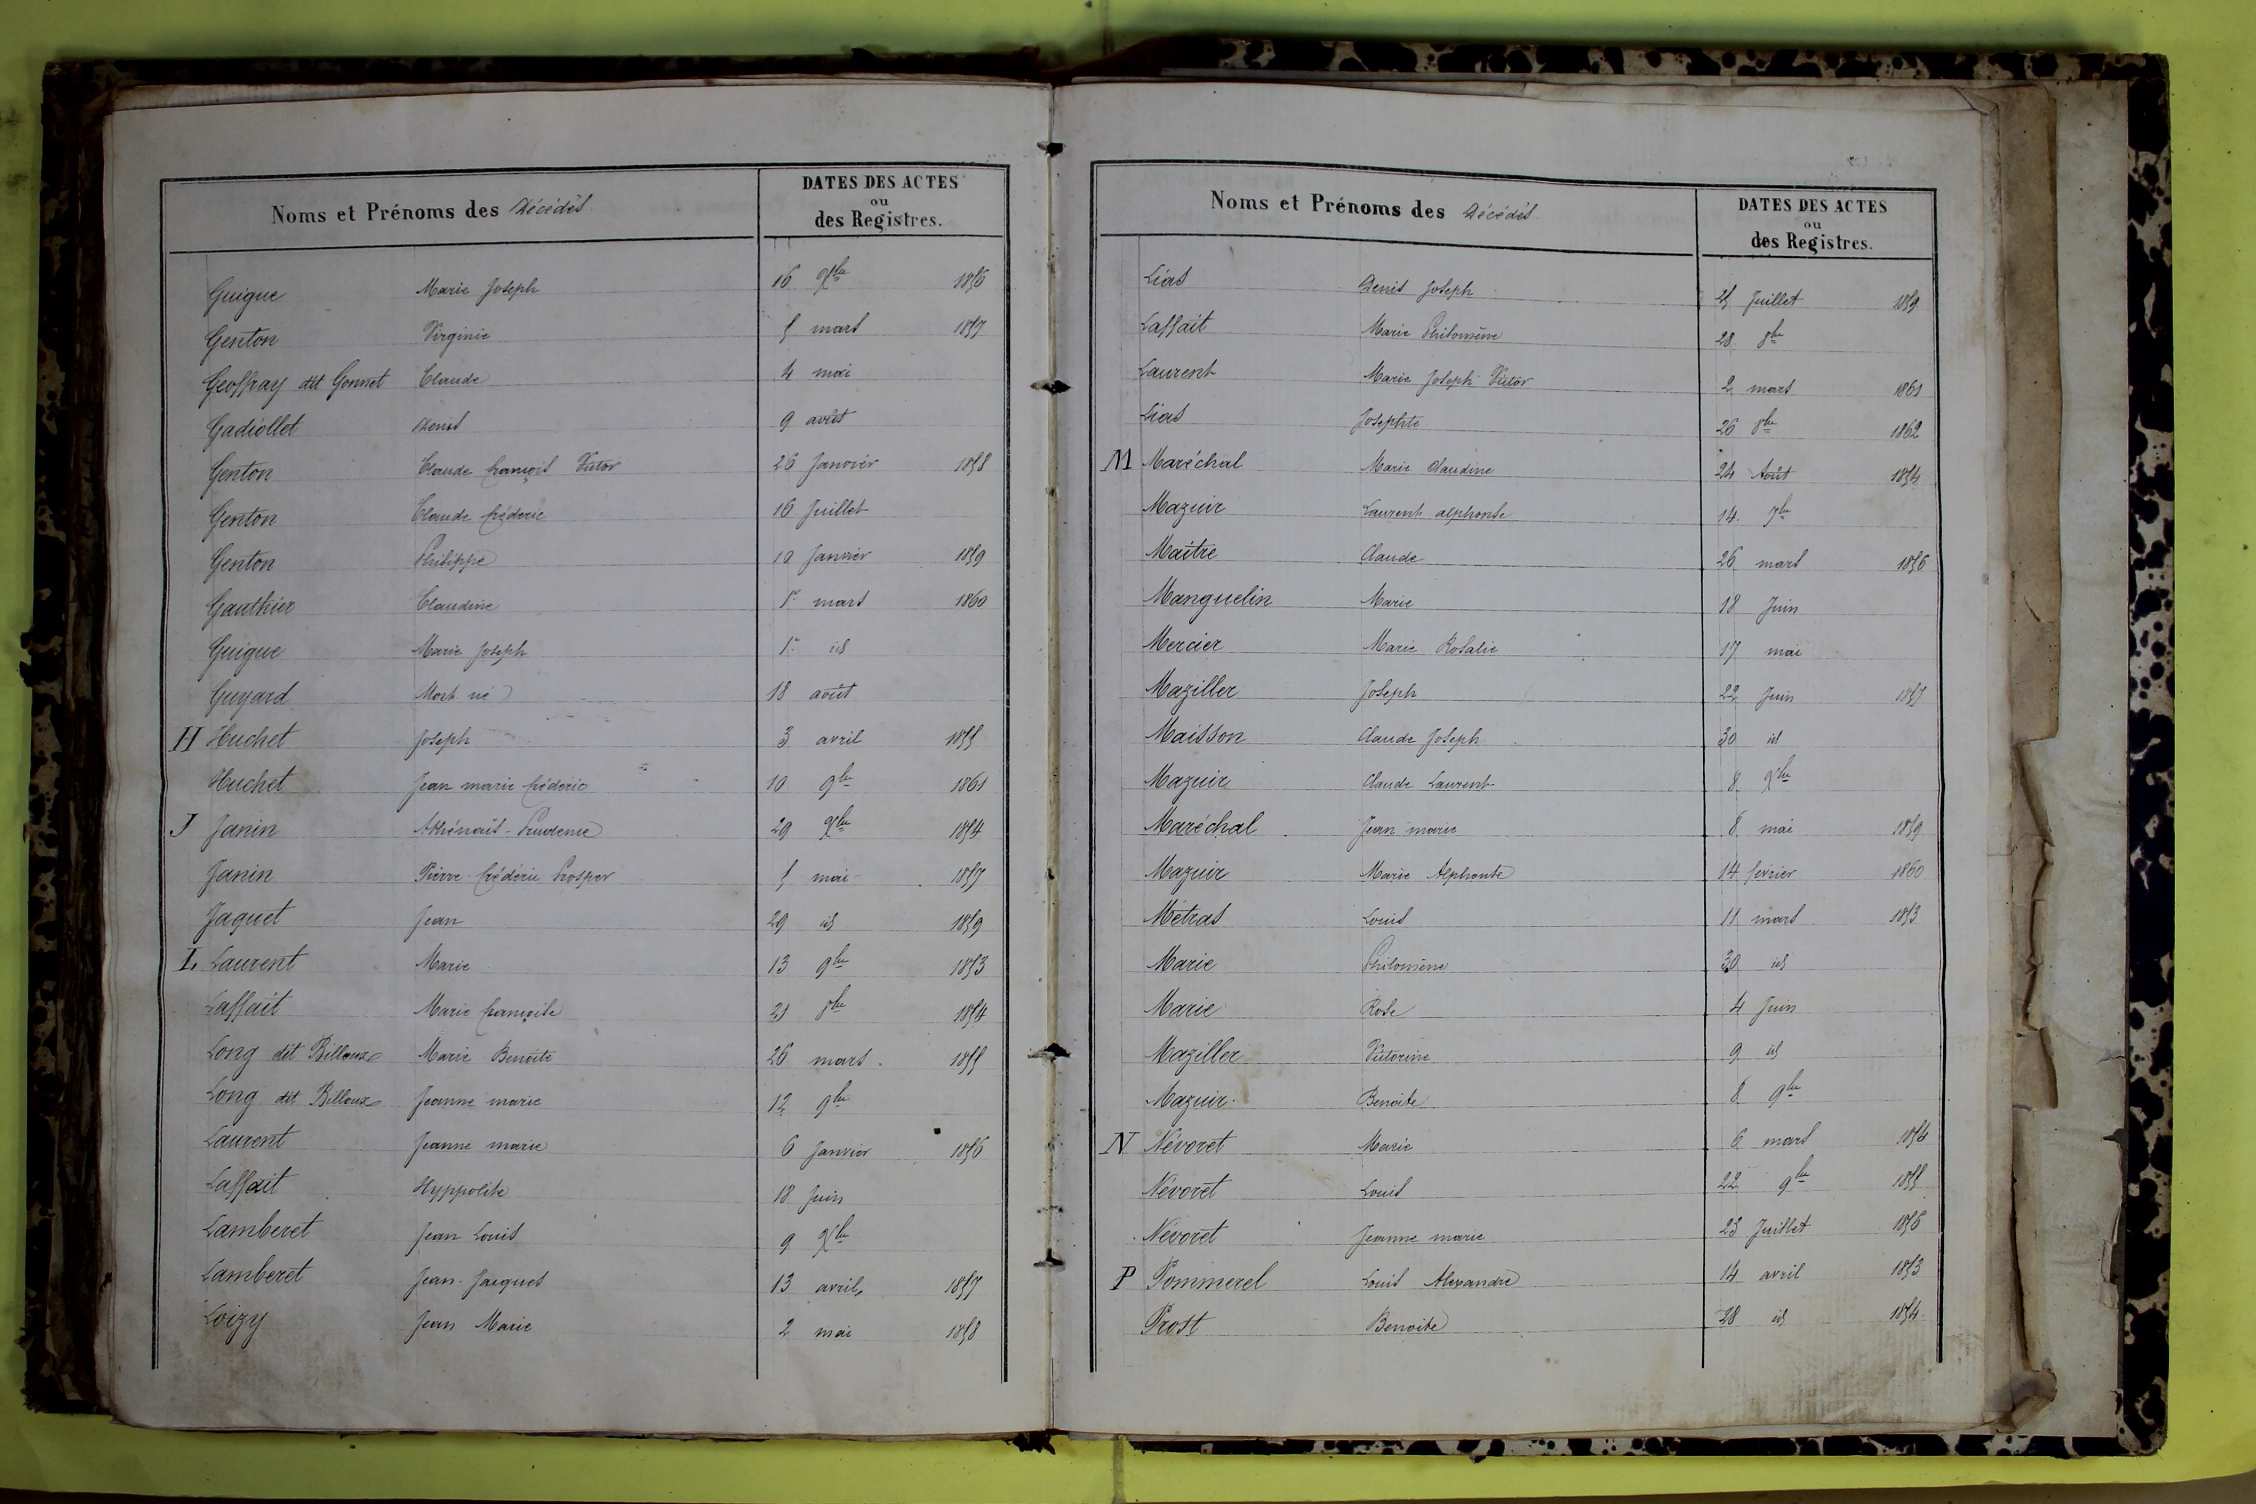 Noms et Prénoms des Décédés
DATES DES ACTES
ou
des Registres.
Guigue Marie Joseph 16 Xbre 1856
Genton Virginie 5 mars 1857
Geoffray dit Gonnet Claude 4 mai
Gadiollet Denis 9 août
Genton Claude françois Victor 26 Janvier 1858
Genton Claude frédéric 16 Juillet
Genton Philippe 10 Janvier 1859
Gauthier Claudine 1er mars 1860
Guigue Marie Joseph 1er id
Guyard Mort né 18 août
H Huchet Joseph 3 avril 1855
Huchet Jean marie frédéric 10 9bre 1861
J Janin Athénaïs Prudence 29 Xbre 1854
Janin Pierre frédéric Prosper 5 mai 1857
Jaquet Jean 29 id 1859
L Laurent Marie 13 9bre 1853
Laffait Marie françoise 21 8bre 1854
Long dit Billoux Marie Benoite 26 mars 1855
Long dit Billoux Jeanne marie 12 9bre
Laurent Jeanne marie 6 Janvier 1856
Laffait Hyppolite 18 Juin
Lamberet Jean Louis 9 Xbre
Lamberet Jean Jacques 13 avril 1857
Loizy Jean Marie 2 mai 1858
Noms et Prénoms des Décédés
DATES DES ACTES
ou
des Registres.
Lias Denis Joseph Juillet 1859
Laffait Marie Philomène 28 8bre
Laurent Marie Joseph Victor 2 mars 1861
Lias Josephte 26 8bre 1862
M Maréchal Marie Claudine 24 Août 1854
Mazuir Laurent alphonse 14 7bre
Maitre Claude 26 mars 1856
Manguelin Marie 18 Juin
Mercier Marie Rosalie 17 mai
Maziller Joseph 22 Juin 1857
Maisson Claude Joseph 30 id
Mazuir Claude Laurent 8 Xbre
Maréchal Jean marie 8 mai 1859
Mazuir Marie Alphonse 14 février 1860
Métras Louis 11 mars 1853
Marie Philomène 30 id
Marie Rose 4 Juin
Maziller Victorine 9 id
Mazuir Benoite 8 9bre
N Névoret Marie 6 mars 1854
Névoret Louis 22 9bre 1855
Névoret Jeanne marie 23 Juillet 1856
P Pommerel Louis Alexandre 14 avril 1853
Prost Benoite 28 id 1854